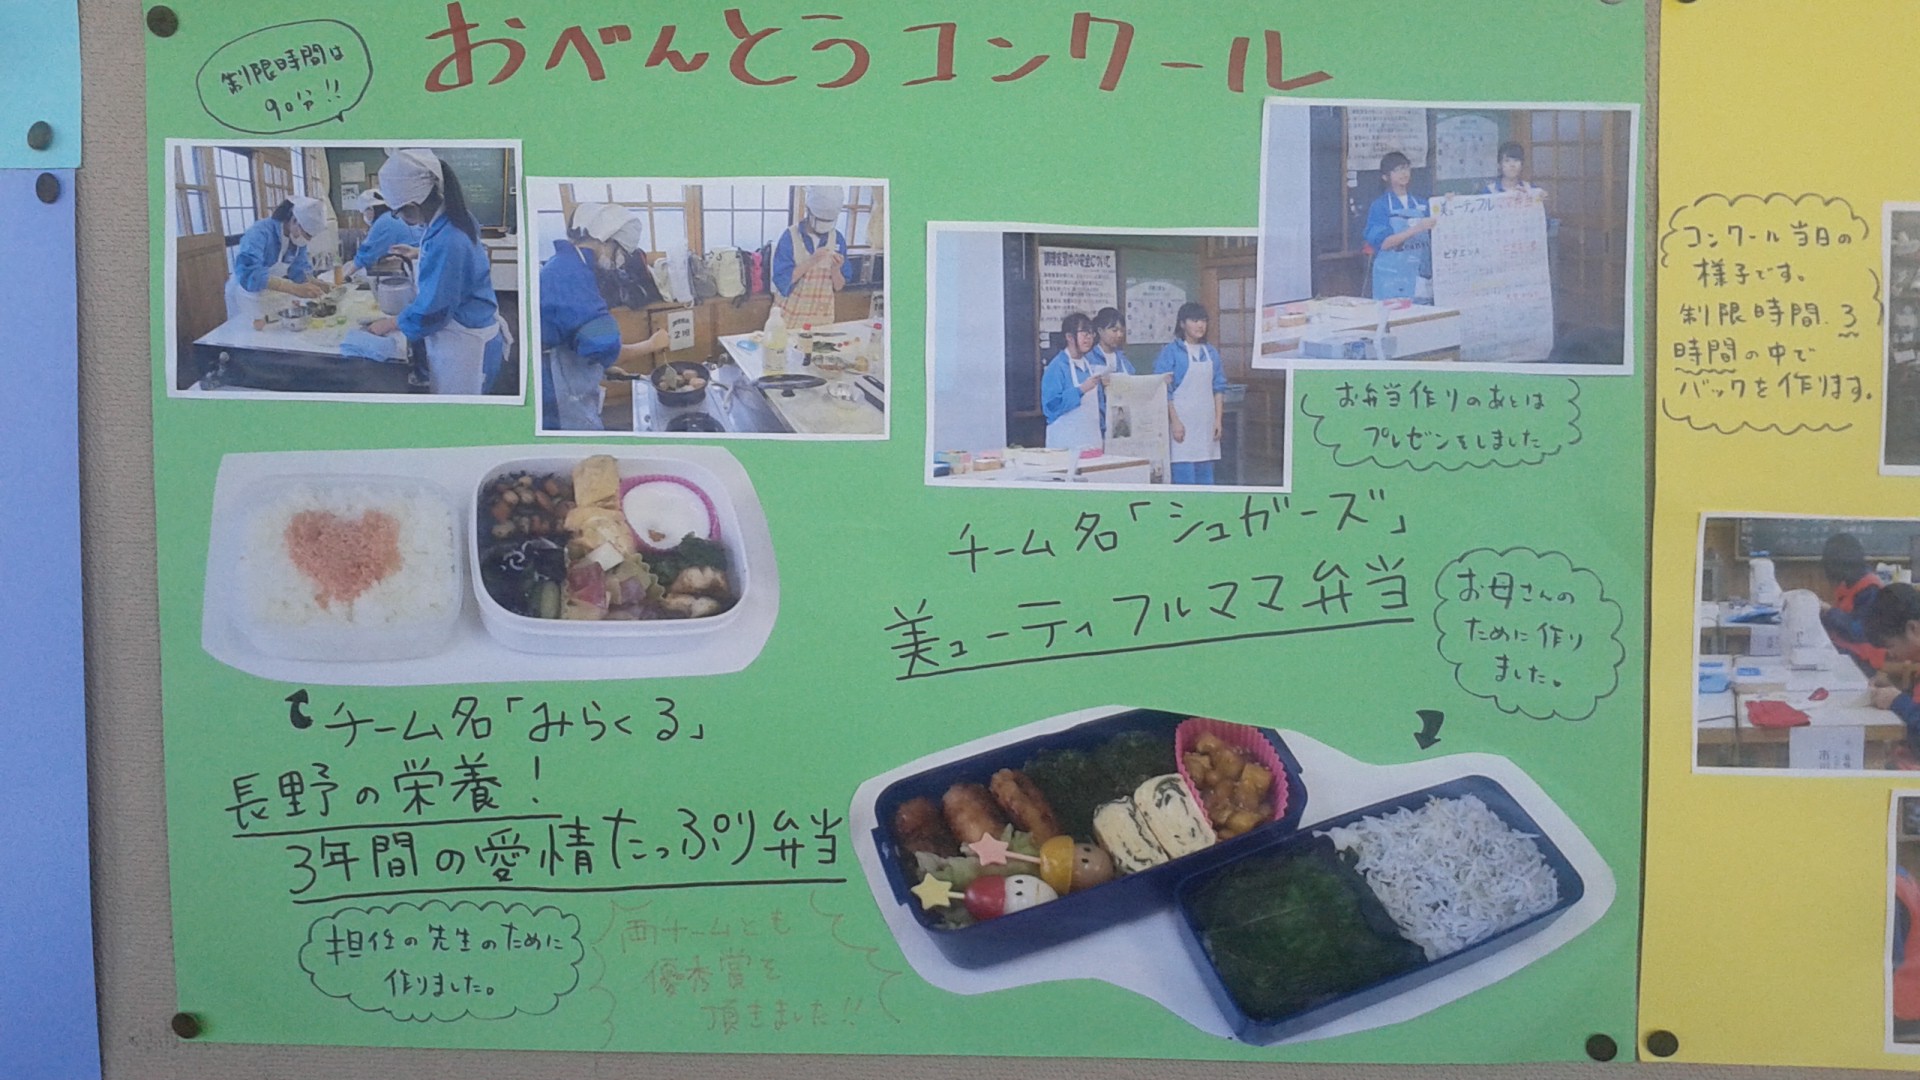 おべんとうコンクール
制限時間は
90分!!
お弁当作りのあとは
プレゼンをしました
チーム名「シュガーズ」
美ューティフルママ弁当
お母さんの
ために作り
ました。
チーム名「みらくる」
長野の栄養!
3年間の愛情たっぷり弁当
担任の先生のために
作りました。
両チームとも
優秀賞を
頂きました!!
コンクール当日の
様子です。
制限時間3
時間の中で
バックを作ります。
調理実習中の安全について
美ューティフル
ビタミンA
2班